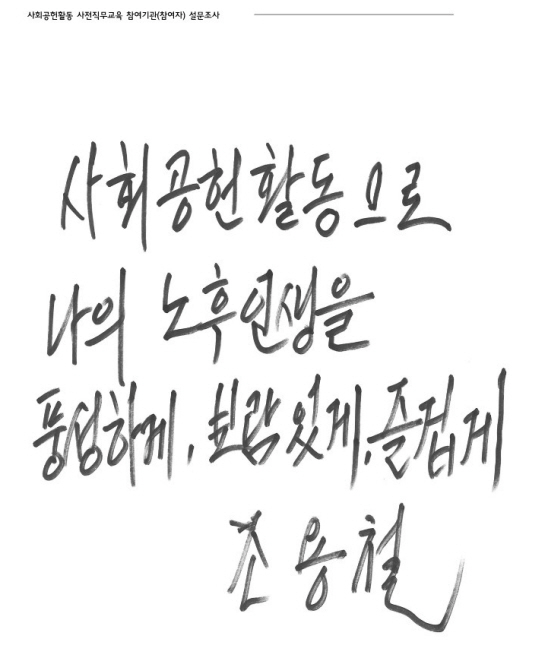 사회공헌활동 사전직무교육 참여기관(참여자) 설문조사
사회공헌활동으로
나의 노후인생을
풍성하게, 보람있게, 즐겁게
조용철